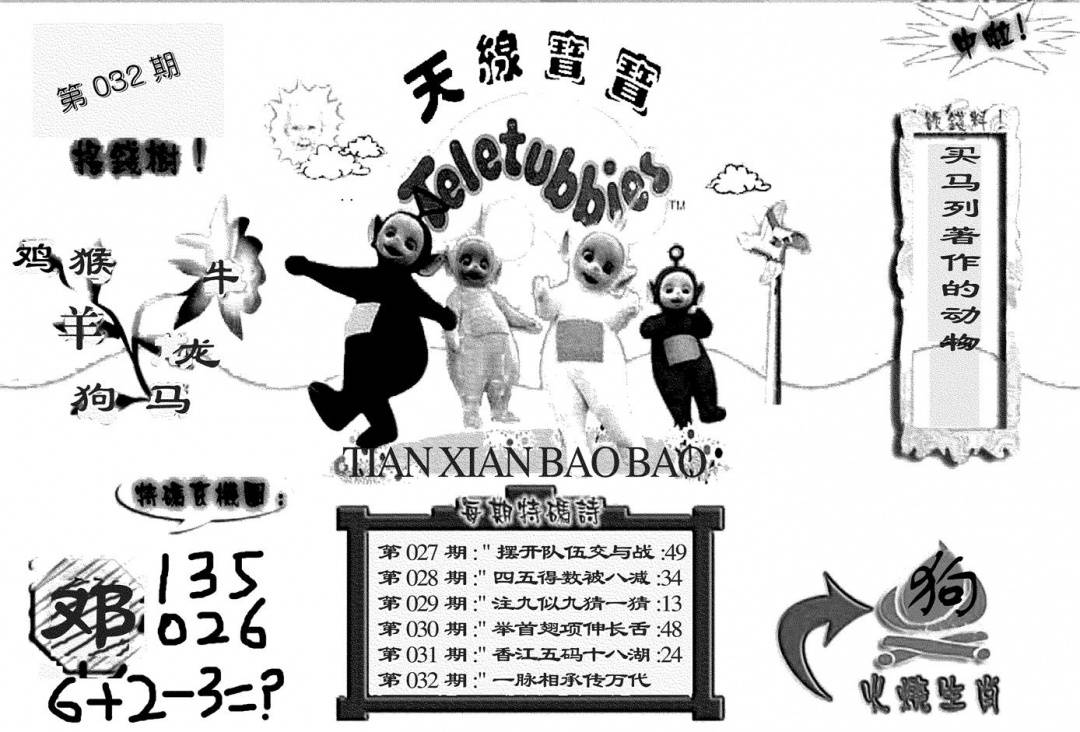 第 032 期
天線寶寶
中啦！
Teletubbies
TM
摇錢樹！
鸡 猴 牛
羊 龙
狗 马
买马列著作的动物
TIAN XIAN BAO BAO
特碼玄機圖：
邓
135
026
6+2-3=?
每期特碼詩
第 027 期 :" 摆开队伍交与战 :49
第 028 期 :" 四五得数被八减 :34
第 029 期 :" 注九似九猜一猜 :13
第 030 期 :" 举首翅项伸长舌 :48
第 031 期 :" 香江五码十八湖 :24
第 032 期 :" 一脉相承传万代
狗
火燒生肖